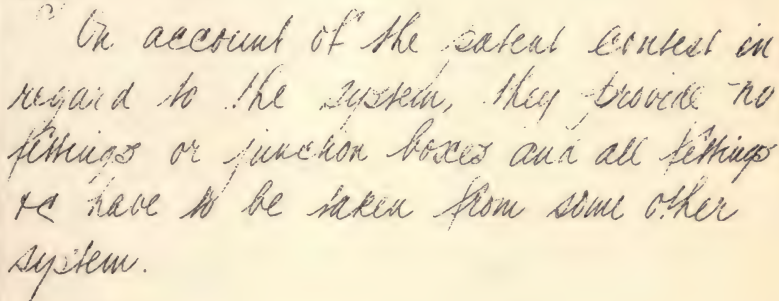 On account of the patent contest in
regard to the system, they provide no
fittings or junction boxes and all fittings
&c have to be taken from some other
system.